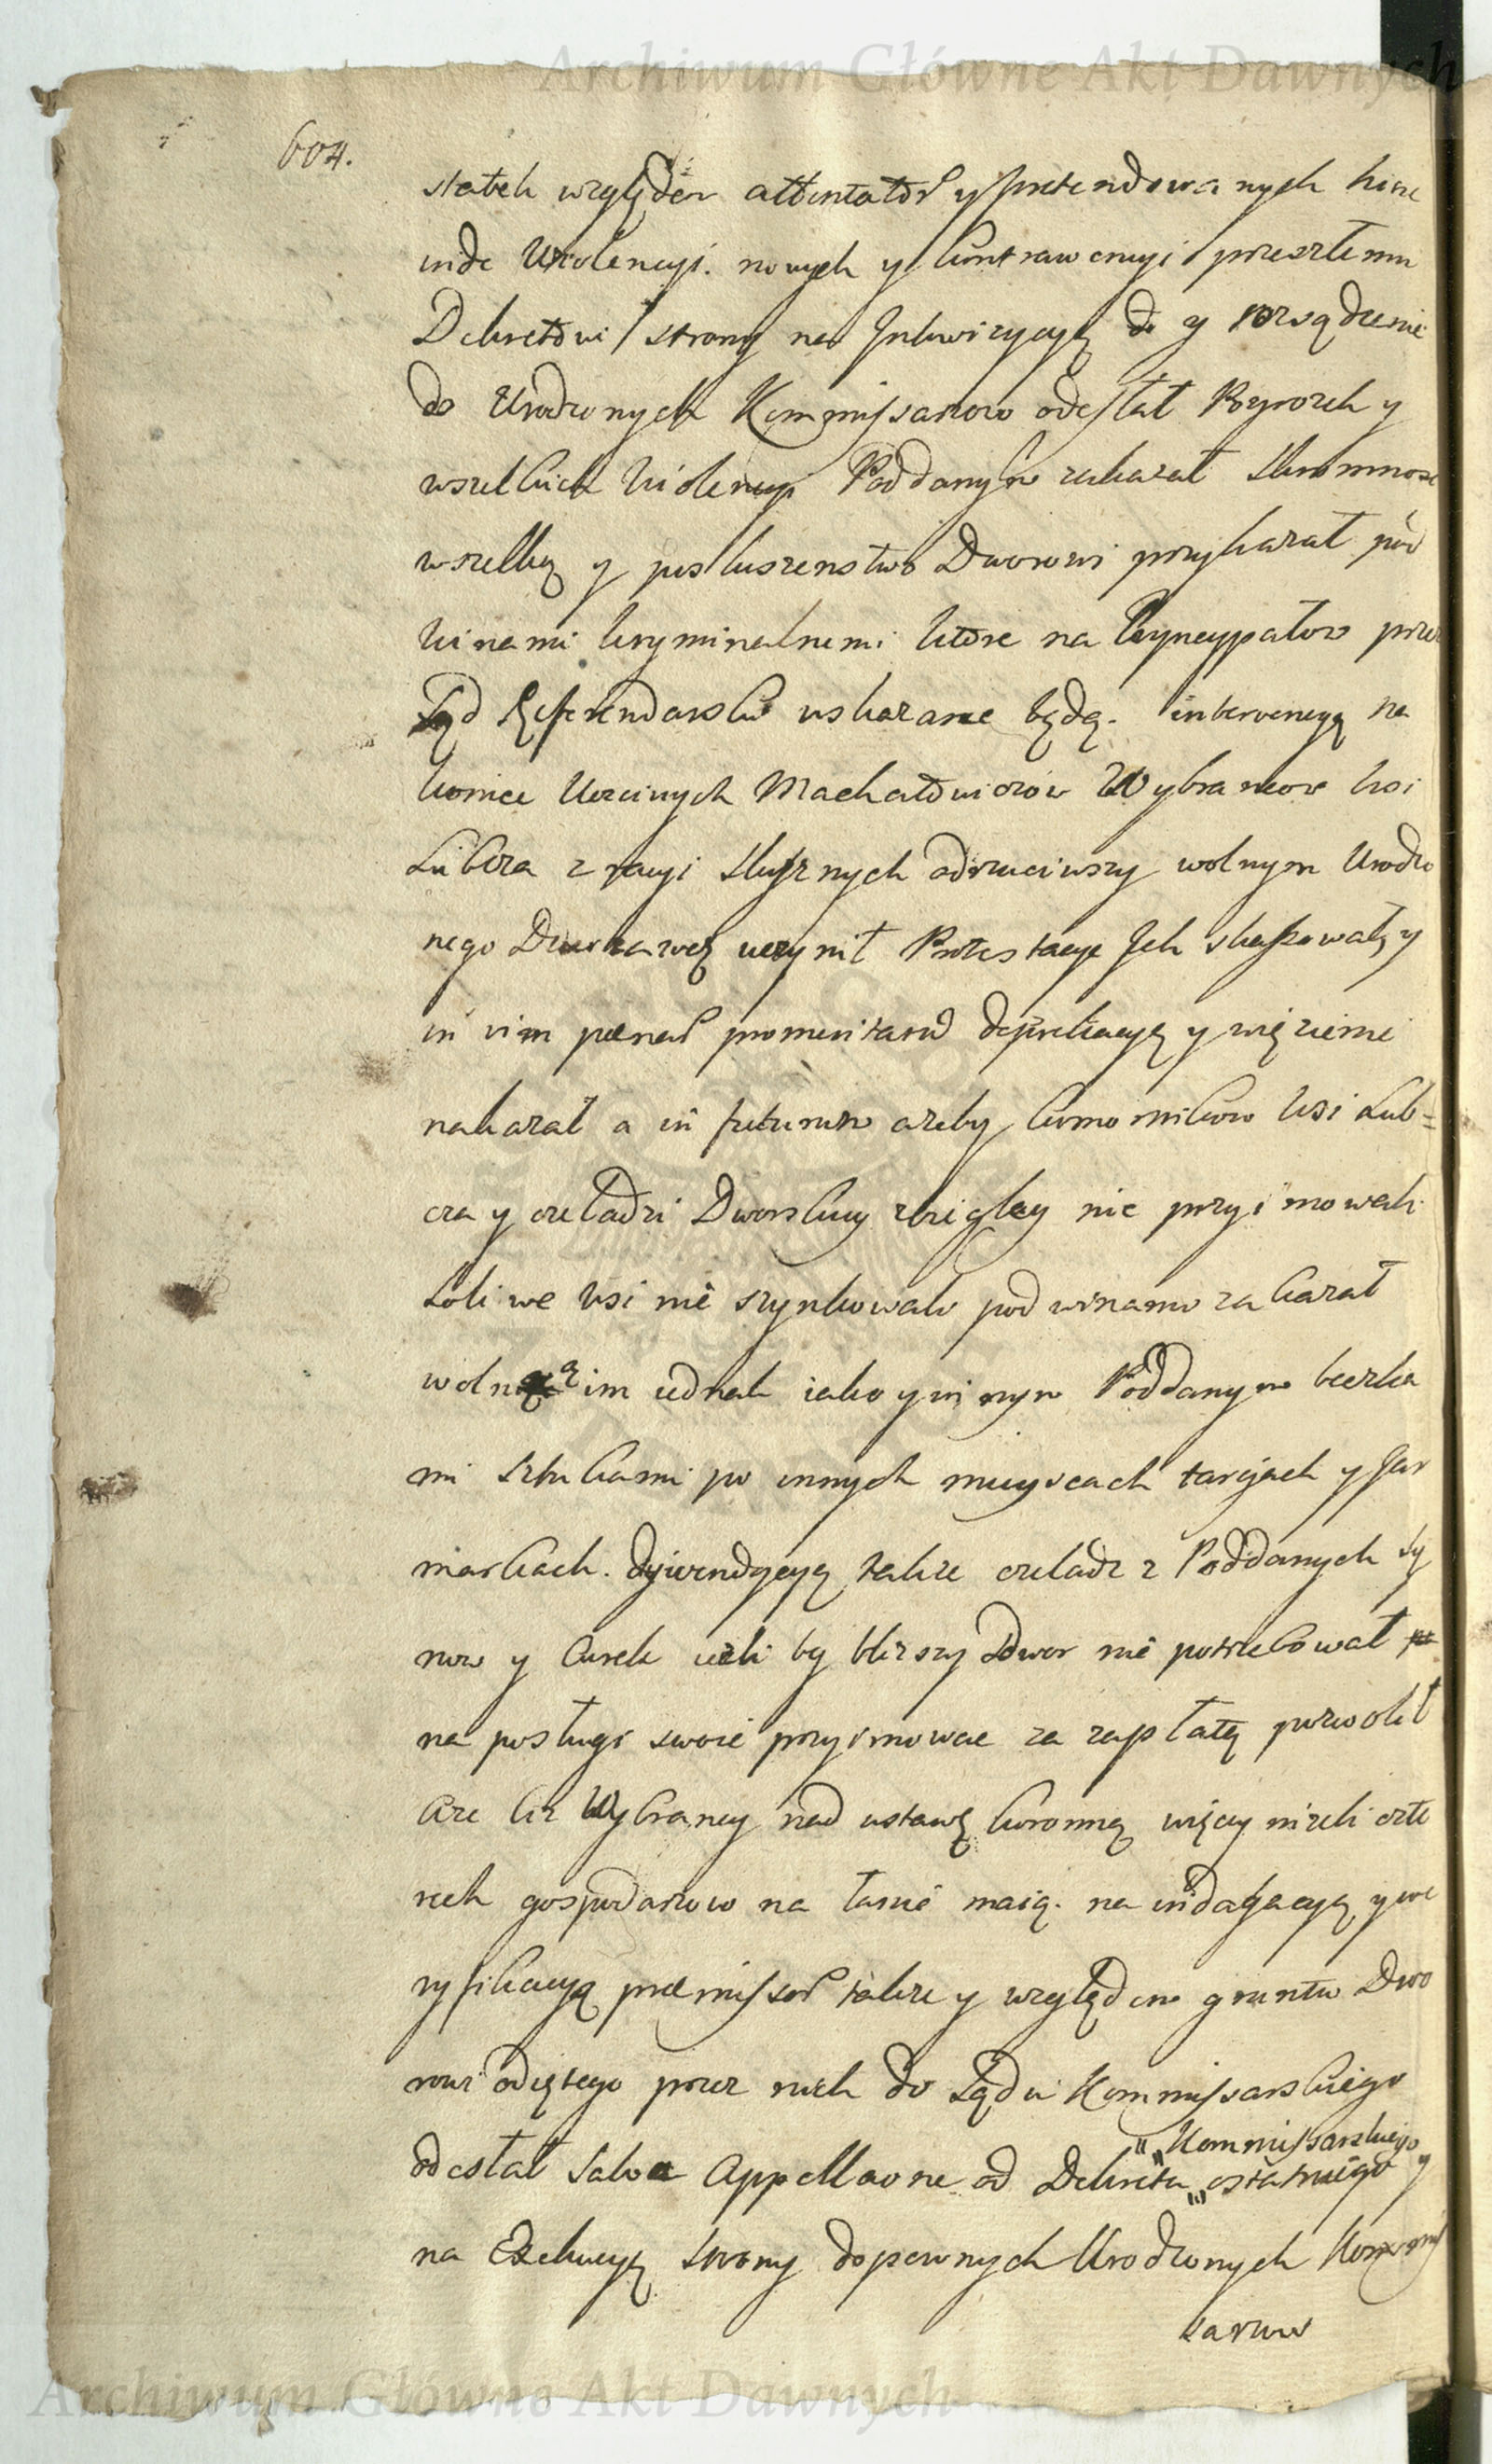 Archiwum Główne Akt Dawnych
604.
statek względem attentatów y pretendowanych hinc
inde Wiolencyi nowych y kontrawencyi przeszłemu
Dekretowi strony na Inkwizycyą do y rozsądzenie
do Urodzonych Kommissarzow odesłał Pogrozek y
wszelkich Wiolencyi Poddanym zakazał skromnosc
wszelką y posłuszenstwo Dworowi przykazał pod
Winami kryminalnemi które na Pryncypałow przez
Sąd Referendarski wskazane będą. interwencyą na
koniec Uczciwych Machałowiczow Wybrancow Wsi
Lubcza z racyi słusznych odrzuciwszy wolnym Urodzo
nego Dzierzawcę uczynił Protestacye Ich skassował y
in vim pœnæ promeritæ deprekacyą y więzienie
nakazał a in futurum azeby komornikow Wsi Lub=
cza y czeladzi Dworskiey zbiegłey nie przyimowali
Soli we Wsi nie szynkowali pod winami zakazał
wolną im iednak iako y innym Poddanym beczka
mi sztukami po innych mieyscach targach y Jar
markach. dywendycyą także czeladz z Poddanych Sy
now y Curek iezli by bliższy Dwor nie potrzebował
na posługi swoie przyimowac za zapłatą pozwolił
Aze ciz Wybrancy nad ustawę koronną więcy nizeli czte
rech gospodarzow na łanie maią. na indagacyą y we
ryfikacyą præmissor także y względem gruntu Dwo
rowi odiętego przez nich do Sądu Kommissarskiego
odesłał Salva Appellaone od Dekretu ostatniego y
Kommissarskiego
na Exekucyą strony do pewnych Urodzonych Kommis
sarzow
Archiwum Główne Akt Dawnych